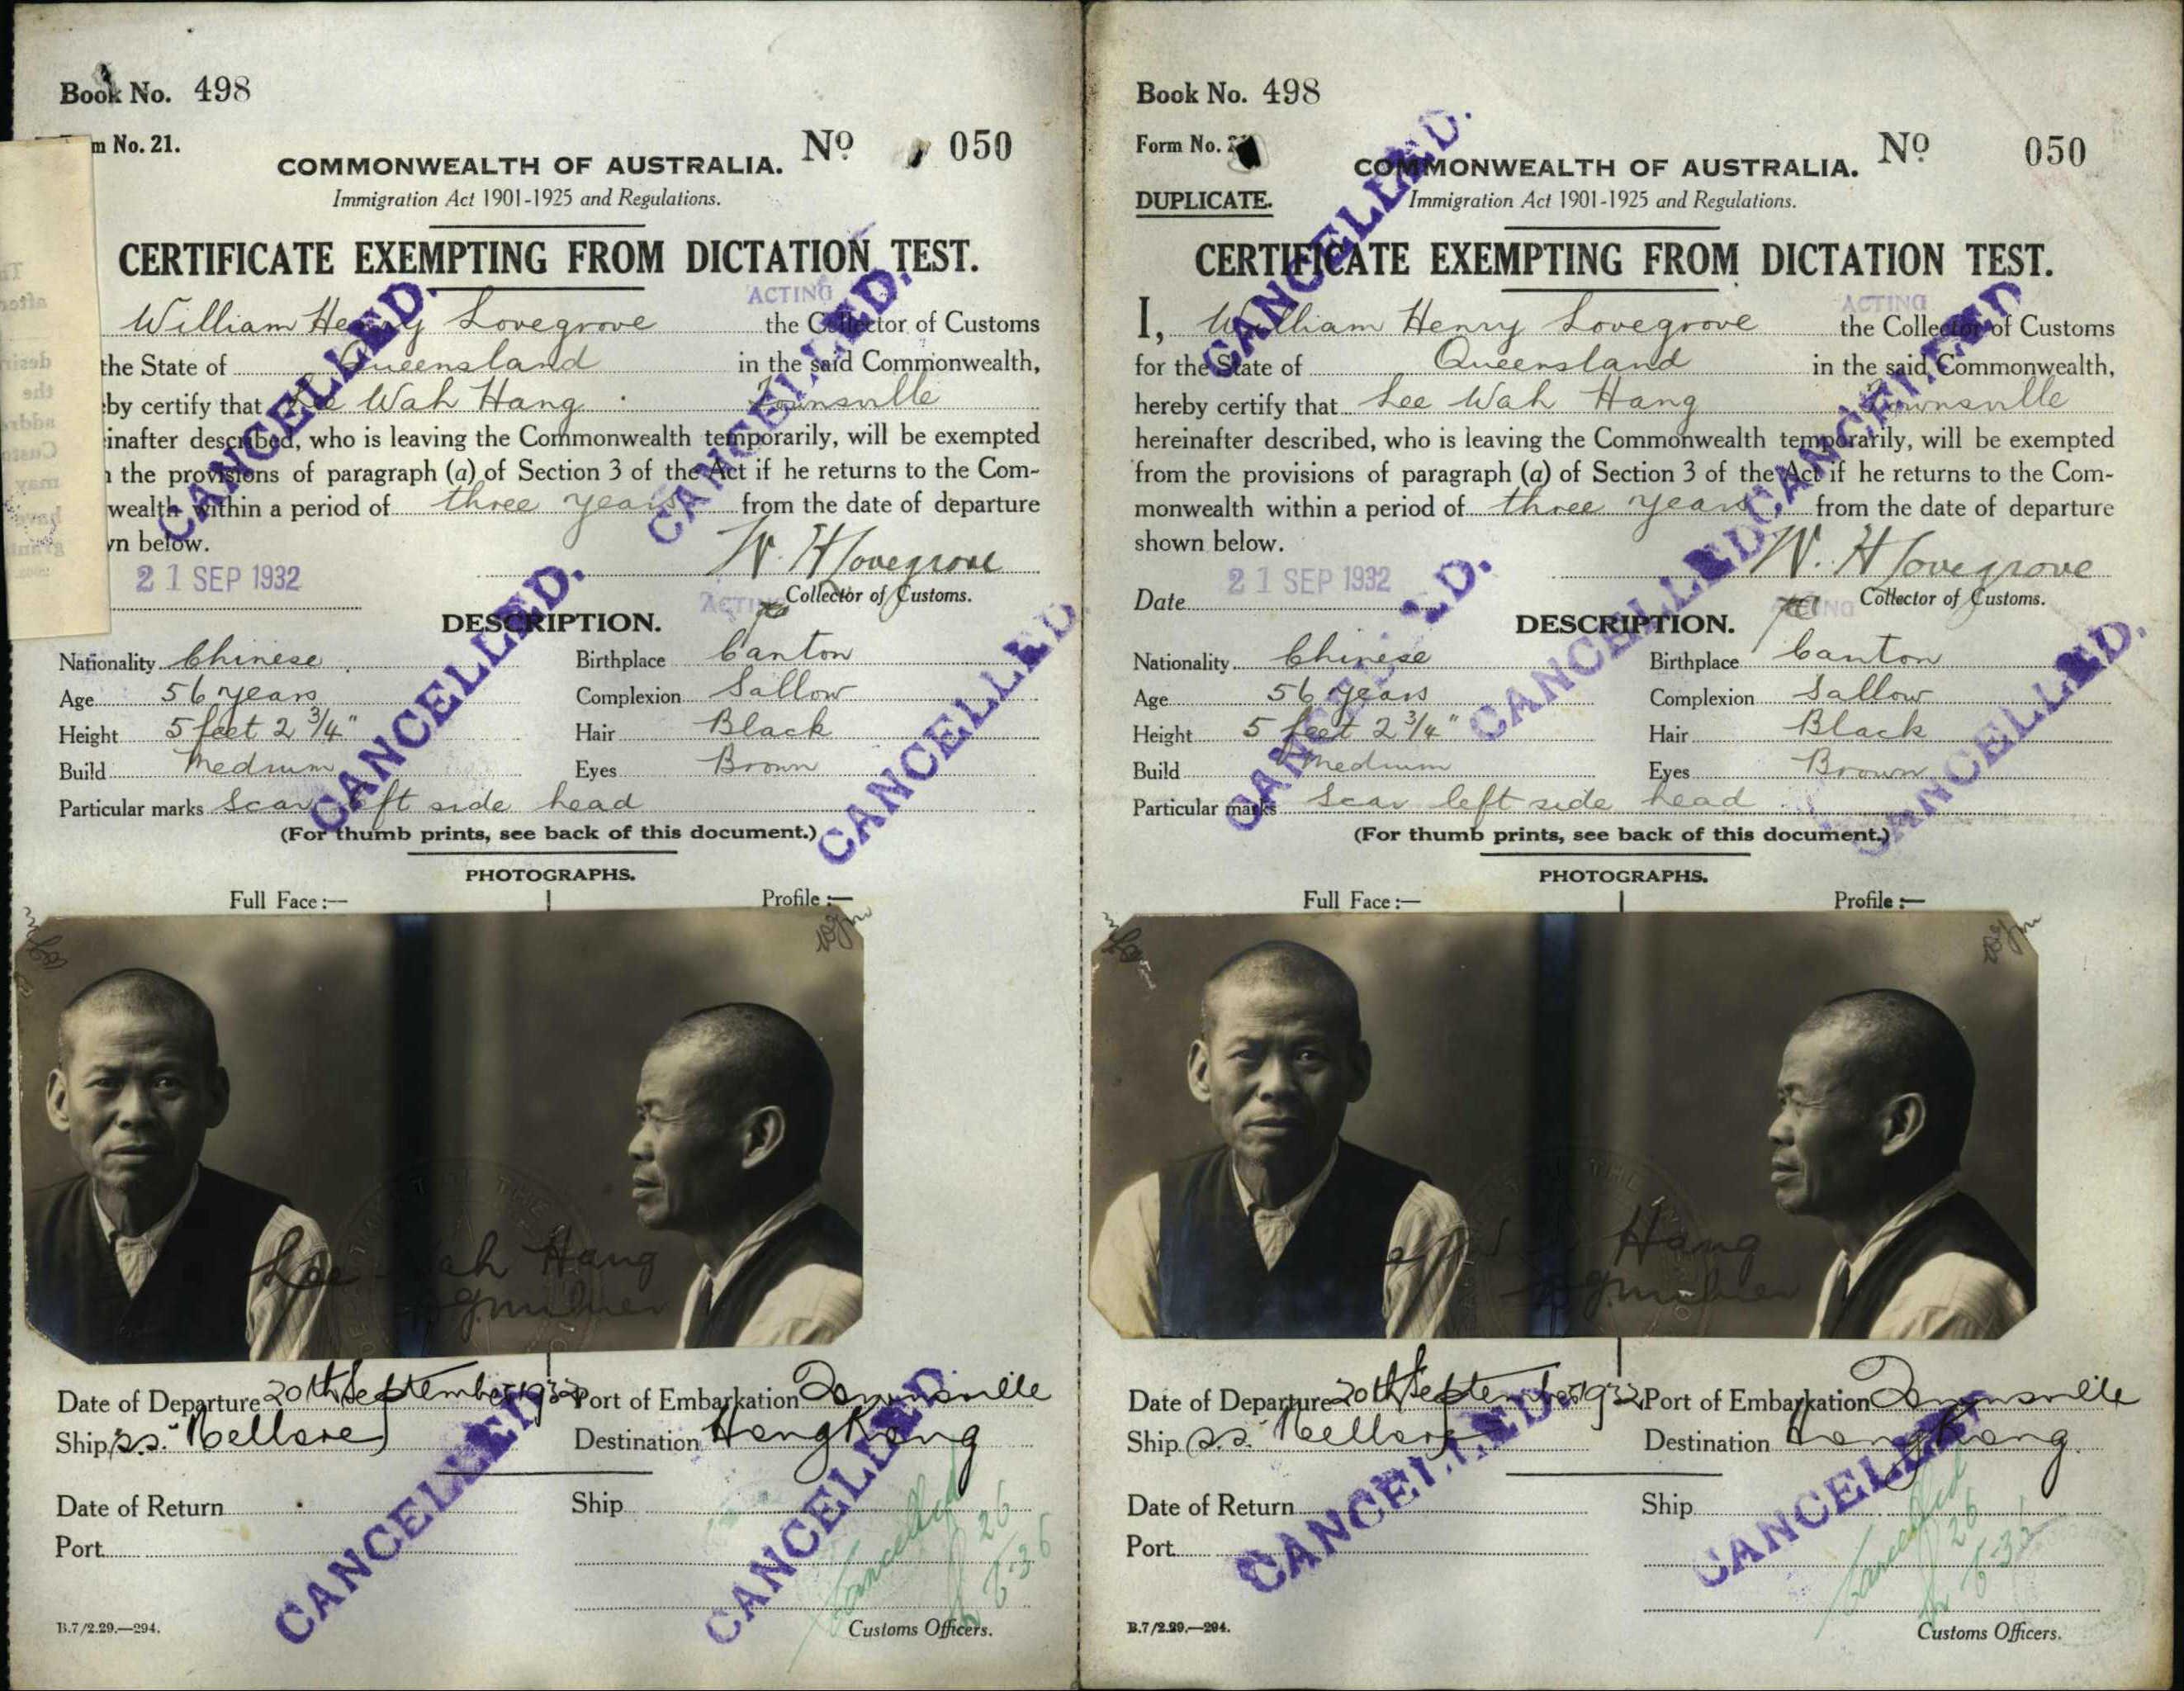 Book No. 498
m No. 21.
No 050
COMMONWEALTH OF AUSTRALIA.
Immigration Act 1901-1925 and Regulations.
CERTIFICATE EXEMPTING FROM DICTATION TEST.
ACTING
William Henry Lovegrove the Collector of Customs
the State of Queensland in the said Commonwealth,
by certify that Lee Wah Hang Townsville
inafter described, who is leaving the Commonwealth temporarily, will be exempted
the provisions of paragraph (a) of Section 3 of the Act if he returns to the Com-
wealth within a period of three years from the date of departure
vn below.
W. H Lovegrove
21 SEP 1932
ACTING Collector of Customs.
DESCRIPTION.
Nationality Chinese Birthplace Canton
Age 56 years Complexion Sallow
Height 5 feet 2 3/4" Hair Black
Build Medium Eyes Brown
Particular marks Scar left side head
(For thumb prints, see back of this document.)
PHOTOGRAPHS.
Full Face:— Profile:—
Lee Wah Hang
Date of Departure 20th September 1932 Port of Embarkation Townsville
Ship s.s. Nellore Destination Hong Kong
Date of Return Ship
Port
Cancelled
26
6-36
B.7/2.29.—294.
Customs Officers.
CANCELLED.
CANCELLED.
CANCELLED.
CANCELLED.
CANCELLED.
CANCELLED.
Book No. 498
Form No.
No 050
COMMONWEALTH OF AUSTRALIA.
DUPLICATE.
Immigration Act 1901-1925 and Regulations.
CERTIFICATE EXEMPTING FROM DICTATION TEST.
ACTING
I, William Henry Lovegrove the Collector of Customs
for the State of Queensland in the said Commonwealth,
hereby certify that Lee Wah Hang Townsville
hereinafter described, who is leaving the Commonwealth temporarily, will be exempted
from the provisions of paragraph (a) of Section 3 of the Act if he returns to the Com-
monwealth within a period of three years from the date of departure
shown below.
W. H Lovegrove
Date 21 SEP 1932
ACTING Collector of Customs.
DESCRIPTION.
Nationality Chinese Birthplace Canton
Age 56 years Complexion Sallow
Height 5 feet 2 3/4" Hair Black
Build Medium Eyes Brown
Particular marks Scar left side head
(For thumb prints, see back of this document.)
PHOTOGRAPHS.
Full Face:— Profile:—
Hang
Date of Departure 20th September 1932 Port of Embarkation Townsville
Ship s.s. Nellore Destination Hong Kong
Date of Return Ship
Port
Cancelled
26
B.7/2.29.—294.
Customs Officers.
CANCELLED.
CANCELLED.
CANCELLED.
CANCELLED.
CANCELLED.
CANCELLED.
CANCELLED.